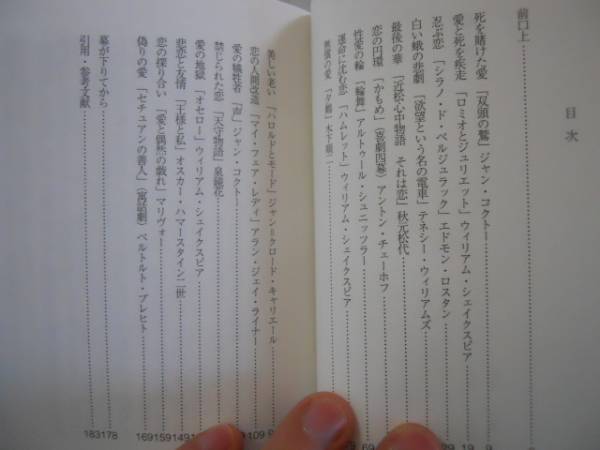 目次
前口上
死を賭けた愛「双頭の鷲」ジャン・コクトー 9
愛と死を疾走「ロミオとジュリエット」ウィリアム・シェイクスピア 19
忍ぶ恋「シラノ・ド・ベルジュラック」エドモン・ロスタン 29
白い蛾の悲劇「欲望という名の電車」テネシー・ウィリアムズ
最後の華「近松心中物語 それは恋」秋元松代
恋の円環「かもめ」(喜劇四幕)アントン・チェーホフ
性愛の輪「輪舞」アルトゥール・シュニッツラー 69
運命に沈む恋「ハムレット」ウィリアム・シェイクスピア
無償の愛「夕鶴」木下順二
美しい老い「ハロルドとモード」ジャン=クロード・キャリエール
恋の人間改造「マイ・フェア・レディ」アラン・ジェイ・ライナー 109
愛の犠牲者「声」ジャン・コクトー
禁じられた恋「天守物語」泉鏡花
愛の地獄「オセロー」ウィリアム・シェイクスピア
悲恋と友情「王様と私」オスカー・ハマースタイン二世 149
恋の探り合い「愛と偶然の戯れ」マリヴォー 159
偽りの愛「セチュアンの善人」(寓話劇)ベルトルト・ブレヒト 169
幕が下りてから 178
引用・参考文献 183